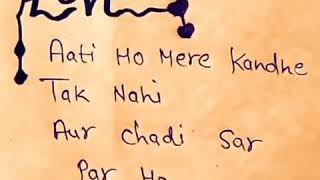 Aati Ho Mere Kandhe
Tak Nahi
Aur Chadi Sar
Par Ho